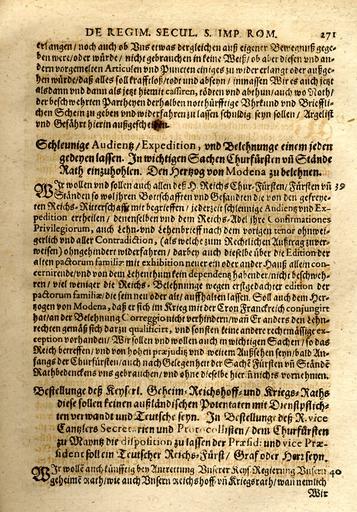 DE REGIM. SECUL. S. IMP. ROM. 271
erlangen / noch auch ob Uns etwas dergleichen auß eigener Bewegnuß gege-
ben were / oder würde / nicht gebrauchen in keine Weiß / ob aber diesen und an-
dern vorgemelten Articulen und Puncten einiges zu wider erlangt oder außge-
hen würde / daß alles soll krafftloß / todt und abseyn / inmassen Wir es auch jetzt
alsdann und dann als jetzt hiemit cassiren, tödten und abthun / auch wo Noth /
der beschwehrten Partheyen derhalben nothürfftige Uhrkund und Brieffli-
chen Schein zu geben und widerfahren zu lassen schuldig seyn sollen / Arglist
und Gefährt hierin außgescheiden.
Schleunige Audientz / Expedition, und Belehnunge einem jeden
gedeyen lassen. In wichtigen Sachen Churfürsten uñ Stände
Rath einzuholen. Den Hertzog von Modena zu belehnen.
Wir wollen und sollen auch allen deß H. Reichs Chur-Fürsten / Fürsten uñ 39
Ständen so wol ihren Bottschafften und Gesandten die von den gefreye-
ten Reichs-Ritterschafft mit begriffen / jederzeit schleunige Audientz und Ex-
pedition ertheilen / denenselben und dem Reichs-Adl ihre Confirmationes
Privilegiorum, auch Lehn- und Lehenbrieff nach dem vorigen tenor ohnwei-
gerlich und aller Contradiction, (als welche zum Rechtlichen Außtrag zuver-
weisen) ohngehindert widerfahren / darbey auch dieselbe über die Edition der
alten pactorum familiæ mit exhibition neuer ein oder ander Hauß allein con-
cernirende / und von dem Lehen thum kein dependentz habender / nicht beschweh-
ren / viel weniger die Reichs-Belehnunge wegen erstgedachter edition der
pactorum familiæ / die sein neu oder alt / auffhalten lassen. Soll auch dem Her-
zogen von Modena, daß er sich im Krieg mit der Cron Franckreich conjungirt
hat / an der Belehnung Corregio nicht verhindern / wañ Er anders den Lehn-
rechten gemäß sich darzu qualificirt, und sonsten keine andere rechtmässige ex-
ception vorhanden / Wir sollen und wollen auch in wichtigen Sachen / so das
Reich betreffen / und von hohen præjuditz und weitem Außsehen seyn / bald An-
fangs der Churfürsten / auch nach Gelegenheit der Sache Fürsten uñ Stände
Rathbedenckens uns gebrauchen / und ohne dieselbe hierin nichts vornehmen.
Bestellunge deß Keyserl. Geheim-Reichshoff- und Kriegs-Raths
diese sollen keinen außländischen Potentaten mit Dienstpflich-
ten verwandt und Teutsche seyn. In Bestellunge deß R. vice
Cantzlers Secretarien und Protocollisten / dem Churfürsten
zu Mayntz die disposition zu lassen der Præsid: und vice Præ-
sident soll ein Teutscher Reichs-Fürst / Graf oder Herr seyn.
Wir wollẽ auch künfftig bey Antrettung Unserer Keys. Regierung Unsern 40
geheime Rath / wie auch Unsern Reichshoff uñ Kriegsrath / wan nemlich
Wir